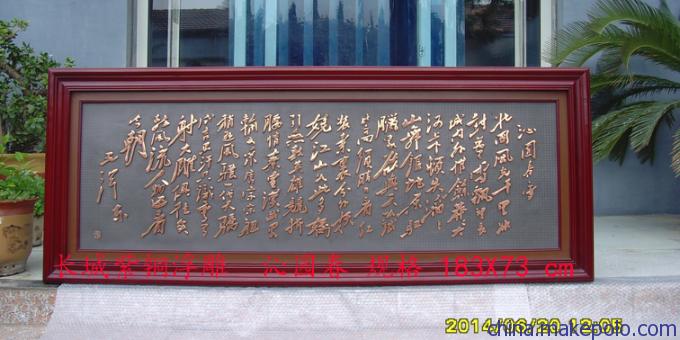 沁园春 雪
北国风光千里冰
封万里雪飘望长
城内外惟馀莽莽大
河上下顿失滔滔
山舞银蛇原驰
腊象欲与天公试
比高须晴日看红
装素裹分外妖
娆江山如此多娇
引无数英雄竞折
腰惜秦皇汉武略
输文采唐宗宋祖
稍逊风骚一代天骄
成吉思汗只识弯弓
射大雕俱往矣
数风流人物还看
今朝
毛泽东
长城紫铜浮雕 沁园春 规格 183X73 cm
2014/06/20 12:05
china.makepolo.com